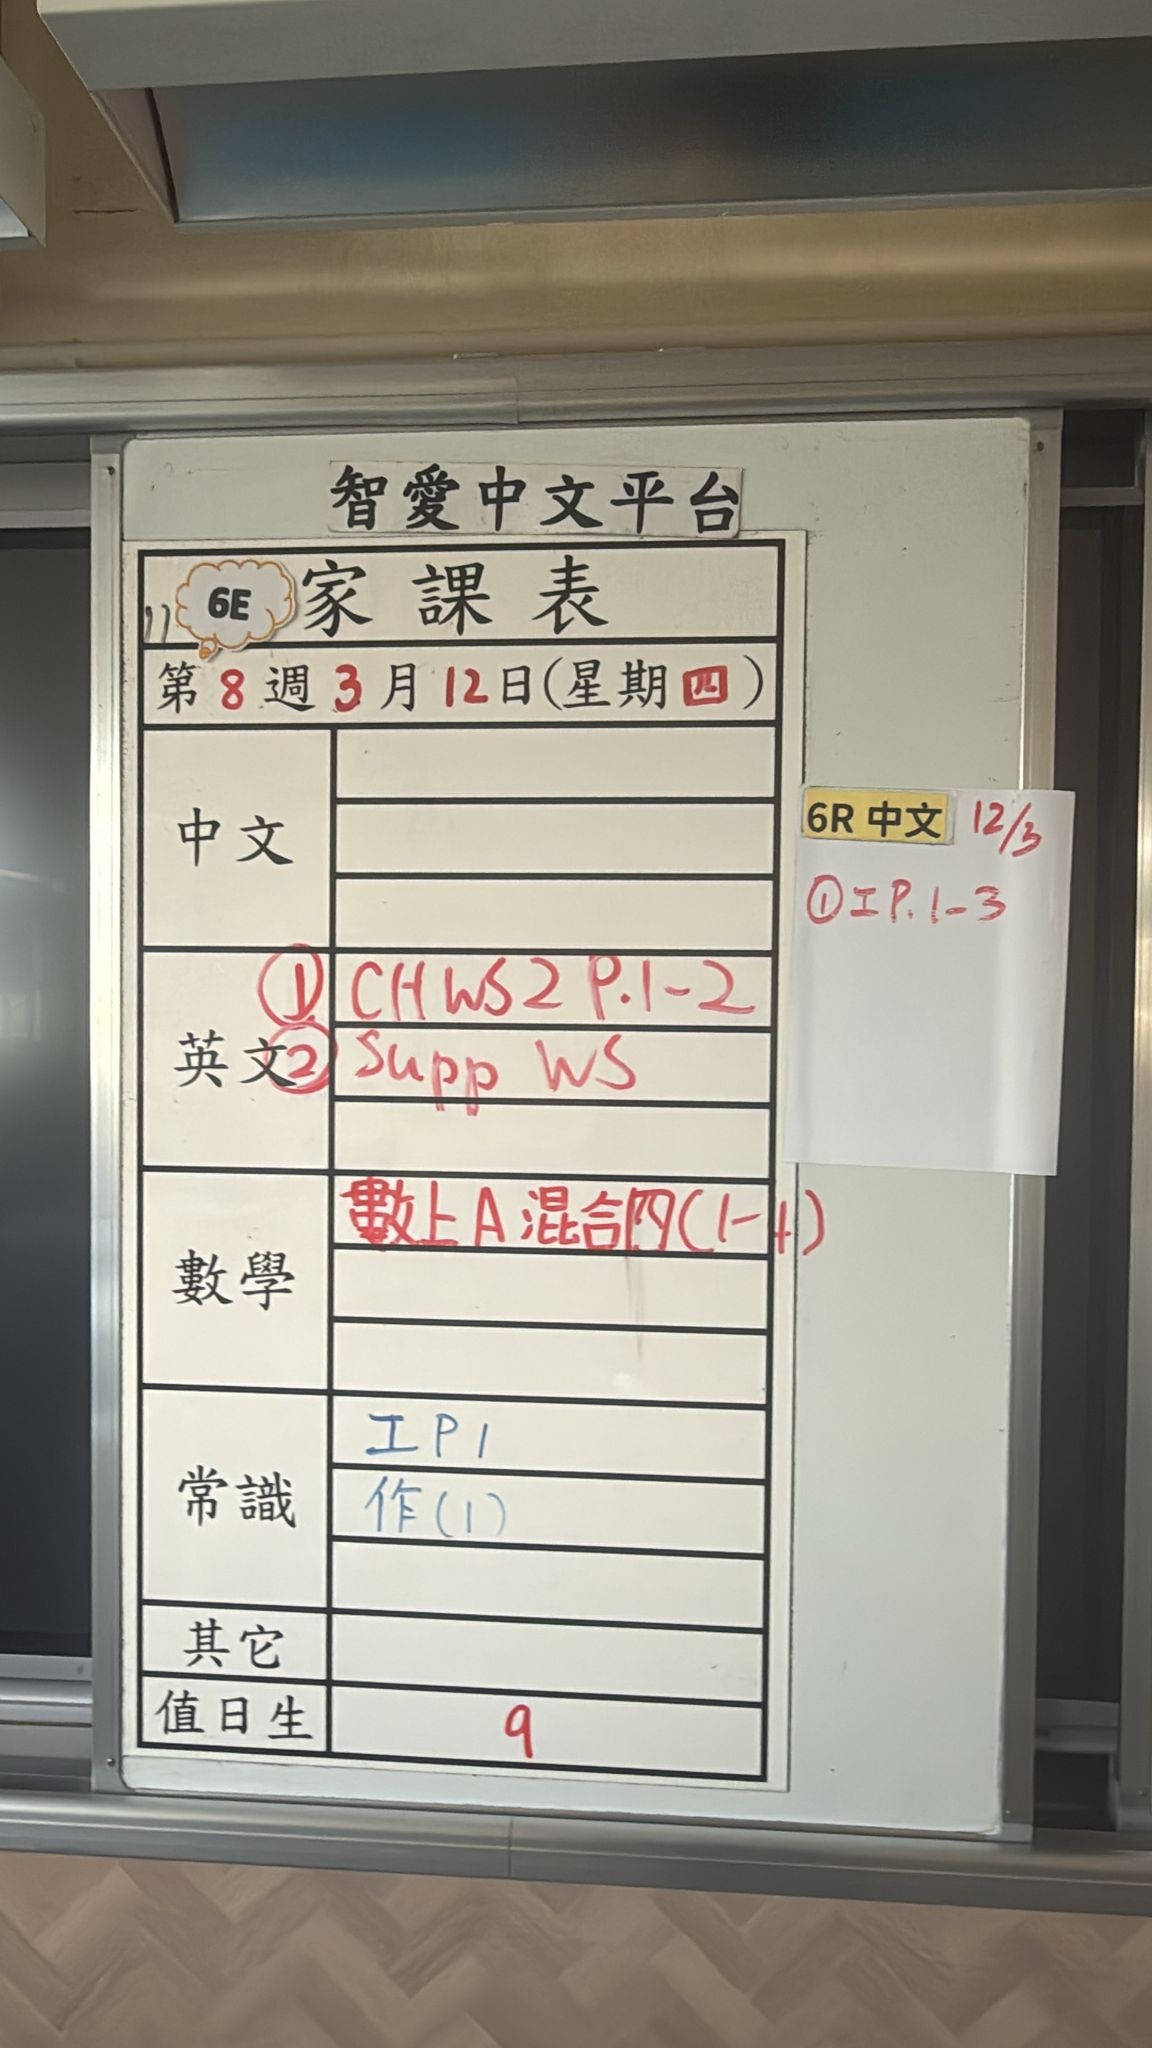 智愛中文平台
6E 家課表
第8週3月12日(星期四)
中文
英文
① CH WS2 P.1-2
② Supp WS
數學
數上A混合四(1-4)
常識
工P1
作(1)
其它
值日生
9
6R 中文 12/3
①工P.1-3